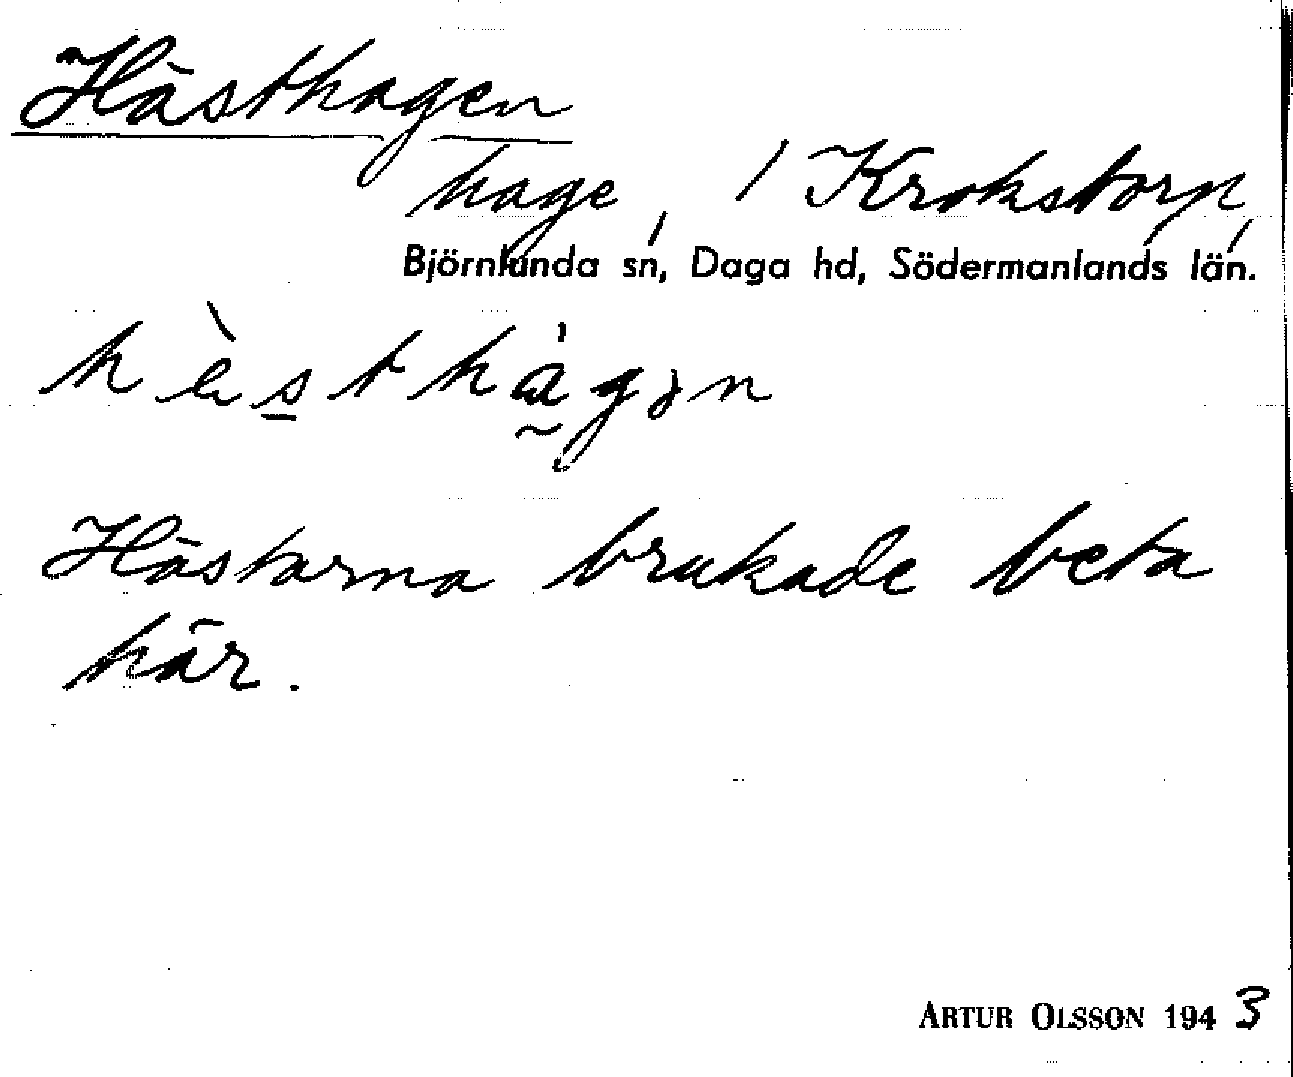 Hästhagen
hage, / Krokstorp,
Björnlunda sn, Daga hd, Södermanlands län.
hèsthagən
Hästarna brukade beta
här.
ARTUR OLSSON 1943